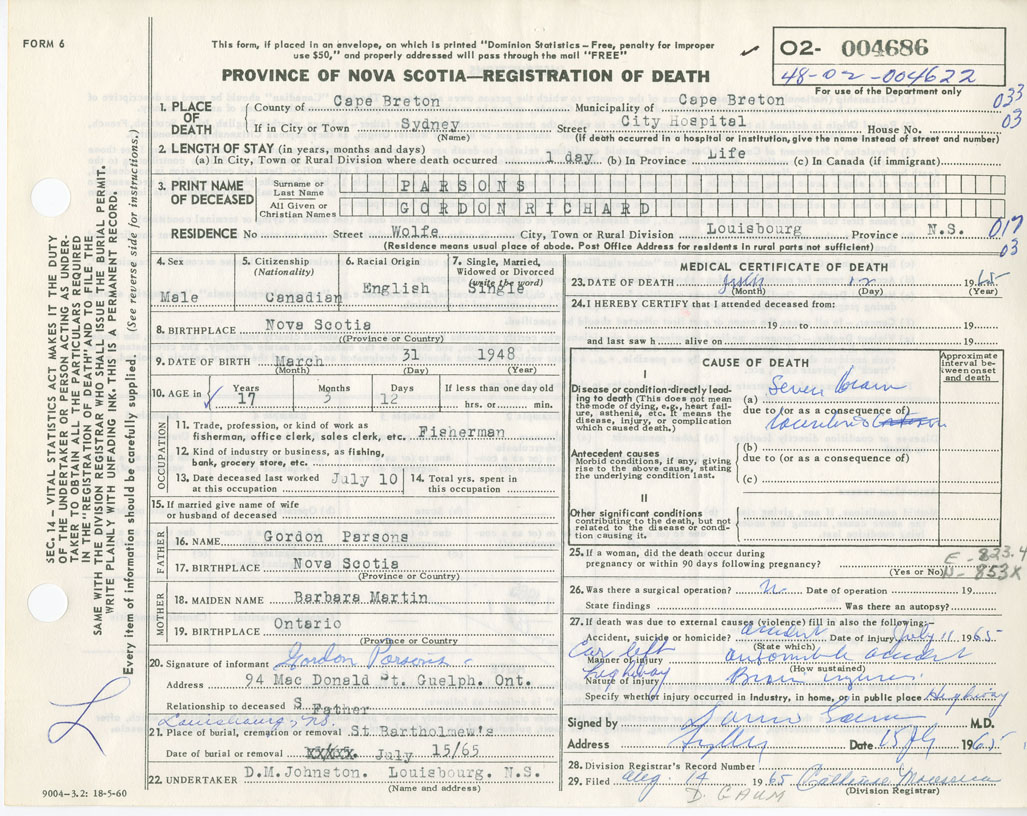 FORM 6
This form, if placed in an envelope, on which is printed "Dominion Statistics – Free, penalty for improper
use $50," and properly addressed will pass through the mail "FREE"
02- 004686
48-02-004622
For use of the Department only
PROVINCE OF NOVA SCOTIA—REGISTRATION OF DEATH
033
03
1. PLACE OF DEATH
County of Cape Breton Municipality of Cape Breton
If in City or Town Sydney Street City Hospital House No.
(Name) (If death occurred in a hospital or institution, give the name instead of street and number)
2. LENGTH OF STAY (in years, months and days)
(a) In City, Town or Rural Division where death occurred 1 day (b) In Province Life (c) In Canada (if immigrant)
3. PRINT NAME OF DECEASED
Surname or Last Name PARSONS
All Given or Christian Names GORDON RICHARD
RESIDENCE No Street Wolfe City, Town or Rural Division Louisbourg Province N.S.
(Residence means usual place of abode. Post Office Address for residents in rural parts not sufficient)
017
03
4. Sex Male
5. Citizenship (Nationality) Canadian
6. Racial Origin English
7. Single, Married, Widowed or Divorced (write the word) Single
8. BIRTHPLACE Nova Scotia
(Province or Country)
9. DATE OF BIRTH March 31 1948
(Month) (Day) (Year)
10. AGE in Years 17 Months 3 Days 12 If less than one day old hrs. or min.
OCCUPATION
11. Trade, profession, or kind of work as
fisherman, office clerk, sales clerk, etc. Fisherman
12. Kind of industry or business, as fishing,
bank, grocery store, etc.
13. Date deceased last worked at this occupation July 10
14. Total yrs. spent in this occupation
15. If married give name of wife
or husband of deceased
FATHER
16. NAME Gordon Parsons
17. BIRTHPLACE Nova Scotia
(Province or Country)
MOTHER
18. MAIDEN NAME Barbara Martin
19. BIRTHPLACE Ontario
(Province or Country
20. Signature of informant Gordon Parsons
Address 94 Mac Donald St. Guelph. Ont.
Relationship to deceased S Father
Louisbourg, NS.
21. Place of burial, cremation or removal St Bartholmew's
Date of burial or removal July 15/65
22. UNDERTAKER D.M.Johnston. Louisbourg. N.S.
(Name and address)
9004-3.2: 18-5-60
MEDICAL CERTIFICATE OF DEATH
23. DATE OF DEATH July 12 1965
(Month) (Day) (Year)
24. I HEREBY CERTIFY that I attended deceased from:
19 to 19
and last saw h alive on 19
CAUSE OF DEATH
Approximate interval between onset and death
I
Disease or condition directly leading to death (This does not mean the mode of dying, e.g., heart failure, asthenia, etc. It means the disease, injury, or complication which caused death.)
(a) Severe brain
due to (or as a consequence of)
Antecedent causes
Morbid conditions, if any, giving rise to the above cause, stating the underlying condition last.
(b)
due to (or as a consequence of)
(c)
II
Other significant conditions
contributing to the death, but not related to the disease or condition causing it.
25. If a woman, did the death occur during
pregnancy or within 90 days following pregnancy?
(Yes or No)
E - 823.4
N - 853X
26. Was there a surgical operation? No Date of operation 19
State findings Was there an autopsy?
27. If death was due to external causes (violence) fill in also the following:
Accident, suicide or homicide? accident Date of injury July 11 1965
(State which)
Car left highway
Manner of injury automobile accident
(How sustained)
Nature of injury Brain injury
Specify whether injury occurred in industry, in home, or in public place Highway
Signed by M.D.
Address Sydney Date 15 July 1965
28. Division Registrar's Record Number
29. Filed Aug. 14 1965
(Division Registrar)
D. GAUM
SEC. 14 – VITAL STATISTICS ACT MAKES IT THE DUTY
OF THE UNDERTAKER OR PERSON ACTING AS UNDER-
TAKER TO OBTAIN ALL THE PARTICULARS REQUIRED
IN THE "REGISTRATION OF DEATH" AND TO FILE THE
SAME WITH THE DIVISION REGISTRAR WHO SHALL ISSUE THE BURIAL PERMIT.
WRITE PLAINLY WITH UNFADING INK. THIS IS A PERMANENT RECORD.
Every item of information should be carefully supplied. (See reverse side for instructions.)